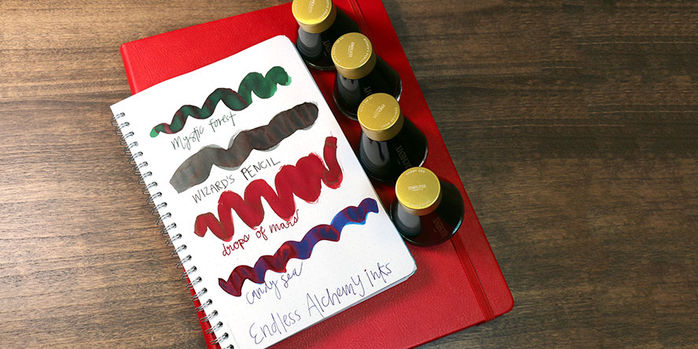 Mystic forest
WIZARD'S PENCIL
drops of mars
candy sea
Endless Alchemy inks